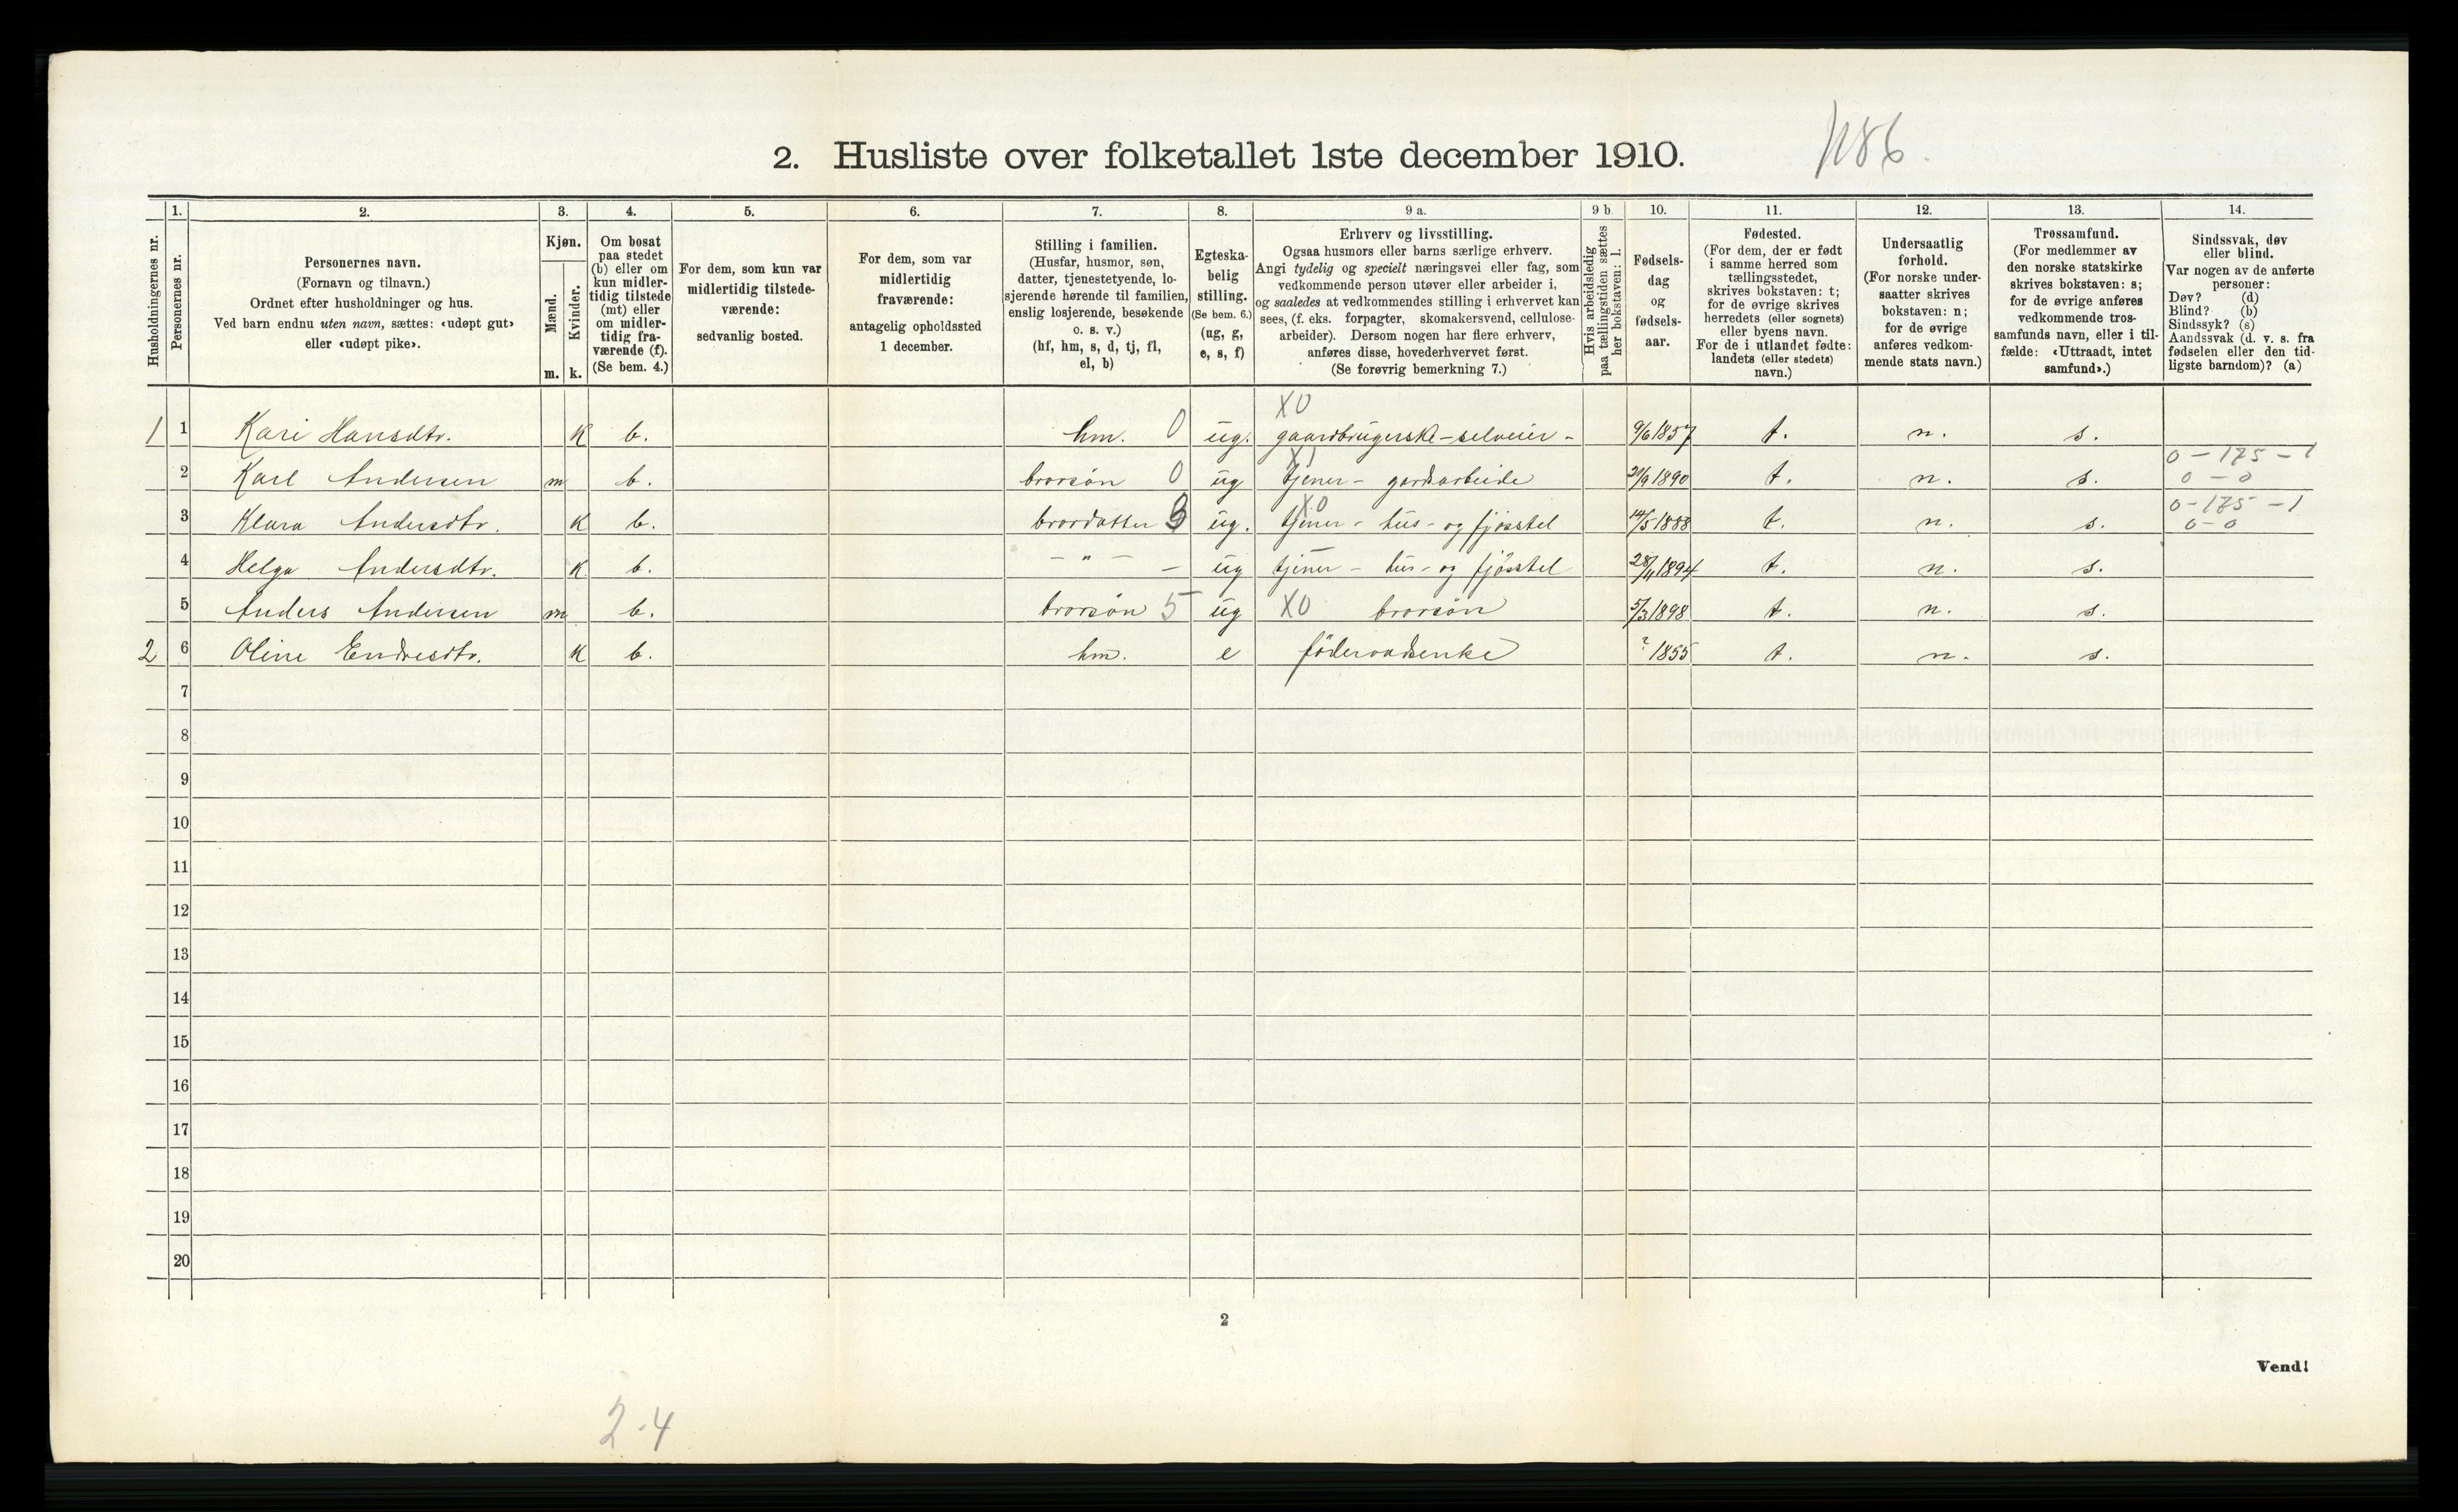 2. Husliste over folketallet 1ste december 1910.
1. 2. 3. 4. 5. 6. 7. 8. 9 a. 9 b 10. 11. 12. 13. 14.
Husholdningernes nr.
Personernes nr.
Personernes navn.
(Fornavn og tilnavn.)
Ordnet efter husholdninger og hus.
Ved barn endnu uten navn, sættes: «udøpt gut»
eller «udøpt pike».
Kjøn.
Mænd.
Kvinder.
m. k.
Om bosat
paa stedet
(b) eller om
kun midler-
tidig tilstede
(mt) eller
om midler-
tidig fra-
værende (f).
(Se bem. 4.)
For dem, som kun var
midlertidig tilstede-
værende:
sedvanlig bosted.
For dem, som var
midlertidig
fraværende:
antagelig opholdssted
1 december.
Stilling i familien.
(Husfar, husmor, søn,
datter, tjenestetyende, lo-
sjerende hørende til familien,
enslig losjerende, besøkende
o. s. v.)
(hf, hm, s, d, tj, fl,
el, b)
Egteska-
belig
stilling.
(Se bem. 6.)
(ug, g,
e, s, f)
Erhverv og livsstilling.
Ogsaa husmors eller barns særlige erhverv.
Angi tydelig og specielt næringsvei eller fag, som
vedkommende person utøver eller arbeider i,
og saaledes at vedkommendes stilling i erhvervet kan
sees, (f. eks. forpagter, skomakersvend, cellulose-
arbeider). Dersom nogen har flere erhverv,
anføres disse, hovederhvervet først.
(Se forøvrig bemerkning 7.)
Hvis arbeidsledig
paa tællingstiden sættes
her bokstaven: l.
Fødsels-
dag
og
fødsels-
aar.
Fødested.
(For dem, der er født
i samme herred som
tællingsstedet,
skrives bokstaven: t;
for de øvrige skrives
herredets (eller sognets)
eller byens navn.
For de i utlandet fødte:
landets (eller stedets)
navn.)
Undersaatlig
forhold.
(For norske under-
saatter skrives
bokstaven: n;
for de øvrige
anføres vedkom-
mende stats navn.)
Trossamfund.
(For medlemmer av
den norske statskirke
skrives bokstaven: s;
for de øvrige anføres
vedkommende tros-
samfunds navn, eller i til-
fælde: «Uttraadt, intet
samfund».)
Sindssvak, døv
eller blind.
Var nogen av de anførte
personer:
Døv? (d)
Blind? (b)
Sindssyk? (s)
Aandssvak (d. v. s. fra
fødselen eller den tid-
ligste barndom)? (a)
X0
1 1 Kari Hansdtr. K b. hm. 0 ug. gaardbrugerske - selveier - 9/6 1857 t. n. s.
0 - 175 - 1
2 Karl Andersen m b. brorsön 0 ug tjener - gardsarbeide 1890 t. n. s. 0 - 0
X0 0-175 -1
3 Klara Andersdtr. K b. brordatter 3 ug. tjener - hus- og fjösstel 14/5 1888 t. n. s. 0-0
4 Helga Andersdtr. K. b. - " - - ug tjener - hus- og fjösstel 28/11 1894 t. n. s.
5 Anders Andersen m b. brorsön 5 ug X0 brorsön 5/3 1898 t. n. s.
2 6 Oline Endresdtr. K b. hm. e föderaadsenke ? 1855 t. n. s.
7
8
9
10
11
12
13
14
15
16
17
18
19
20
2
Vend!
2-4